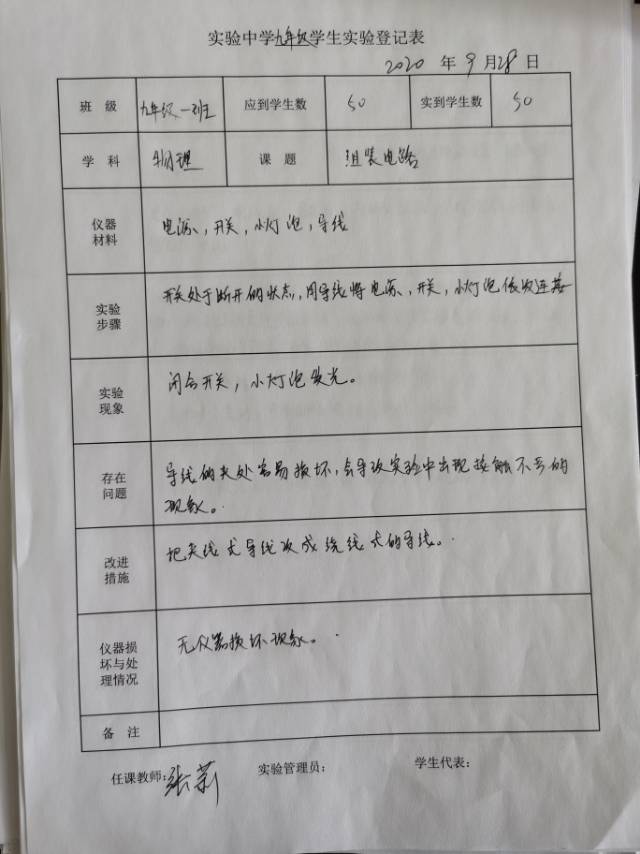 实验中学九年级学生实验登记表
2020 年 9 月 28 日
班 级 九年级一班 应到学生数 50 实到学生数 50
学 科 物理 课 题 组装电路
仪器
材料
电源、开关，小灯泡，导线
实验
步骤
开关处于断开的状态，用导线将电源、开关，小灯泡依次连接
实验
现象
闭合开关，小灯泡发光。
存在
问题
导线的夹处容易损坏，会导致实验中出现接触不良的
现象。
改进
措施
把夹线式导线改成绕线式的导线。
仪器损
坏与处
理情况
无仪器损坏现象。
备 注
任课教师：张莉 实验管理员： 学生代表：